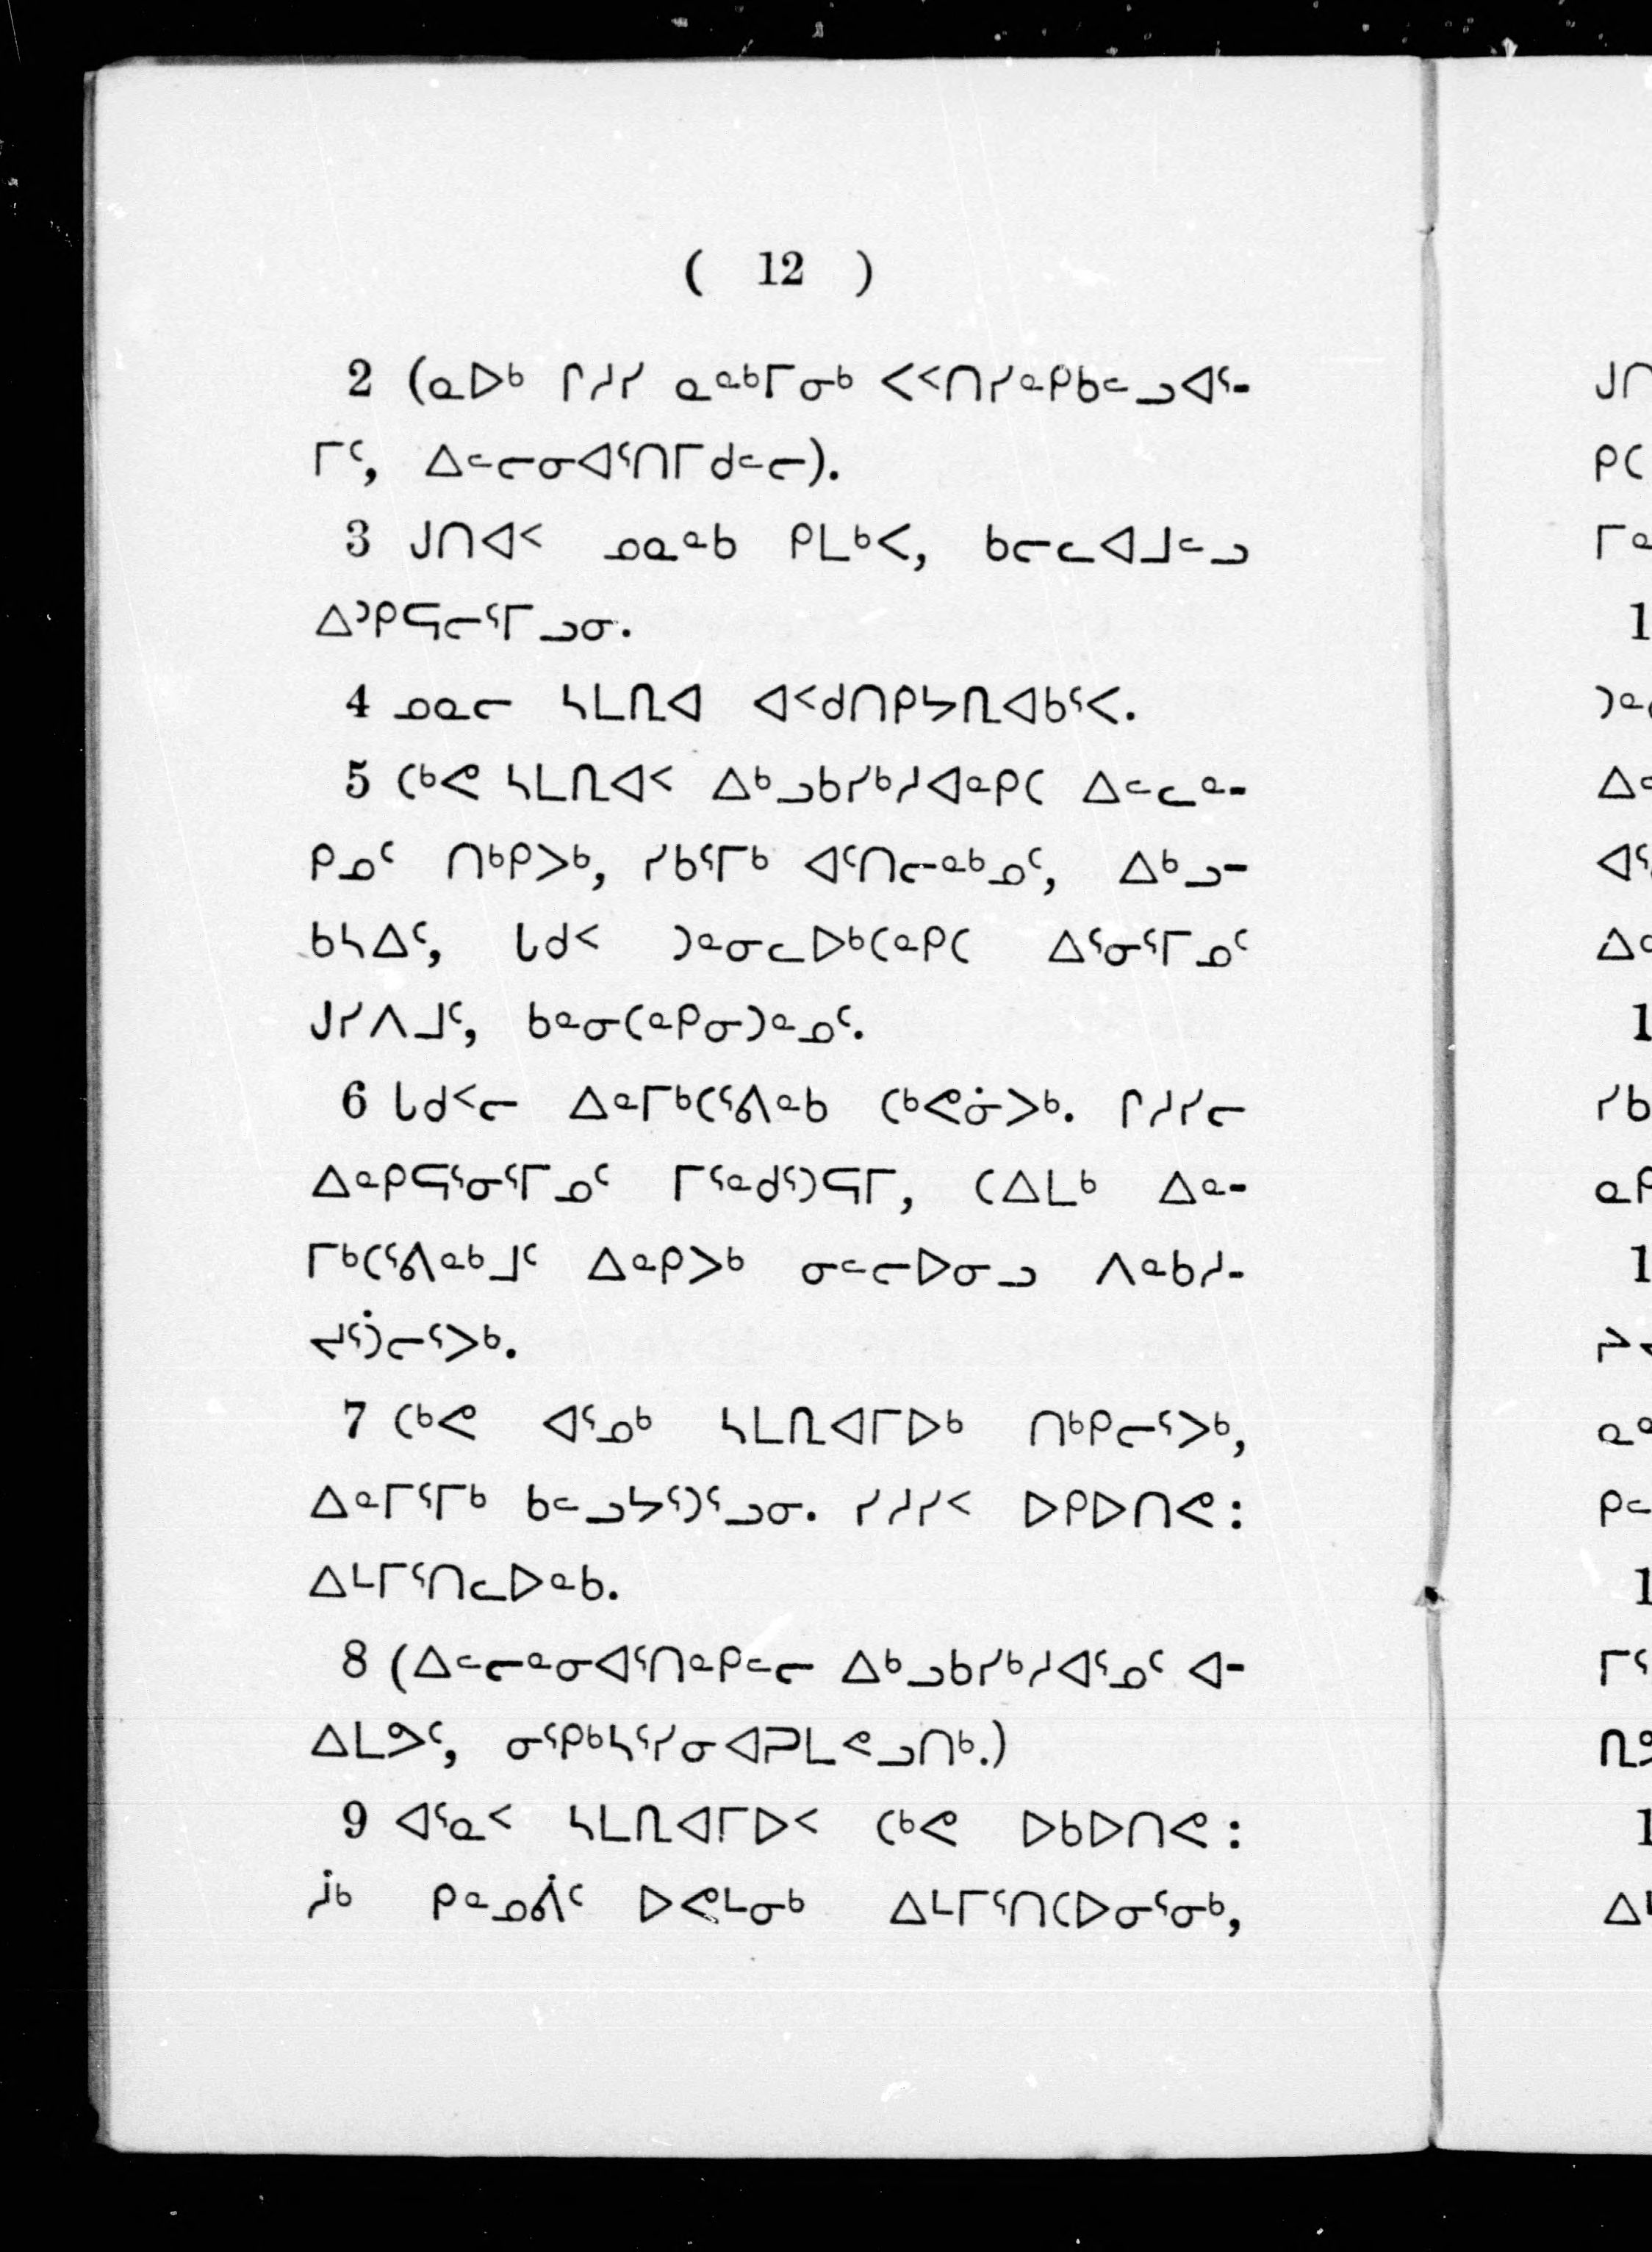 ( 12 )
2 (ᓇᐅᒃ ᒋᓱᓯ ᓇᓐᒃᒥᓂᒃ ᐸᑉᑎᓯᓐᑭᑲᓪᓗᐊᕐ-
ᒥᑦ, ᐃᓪᓕᓂᐊᕐᑎᒥᑯᓪᓕ).
3 ᒍᑎᐊᑉ ᓄᓇᓐᑲ ᑭᒪᒃᐸ, ᑲᓕᓚᐊᒧᓪᓗ
ᐃᑐᑭᕋᓕᕐᒥᓗᓂ.
4 ᓄᓇᓕ ᓴᒪᕆᐊ ᐊᑉᑯᑎᑭᔭᕆᐊᑲᕐᐸ.
5 ᑕᒃᕙ ᓴᒪᕆᐊᑉ ᐃᒃᓗᑲᓯᒃᓱᐊᓐᑭᑕ ᐃᓪᓚᓐ-
ᑭᓄᑦ ᑎᒃᑭᐳᒃ, ᓯᑲᕐᒥᒃ ᐊᑦᑎᓕᓐᒃᓄᑦ, ᐃᒃᓗ-
ᑲᓴᐃᑦ, ᒐᑯᑉ ᑐᓐᓂᓚᐅᒃᑕᓐᑭᑕ ᐃᕐᓂᕐᒥᓄᑦ
ᒍᓯᐱᒧᑦ, ᑲᓐᓂᑕᓐᑭᓂᑐᓐᓄᑦ.
6 ᒐᑯᑉᓕ ᐃᓐᒥᒃᑕᕐᕕᓐᑲ ᑕᒃᕙᓃᐳᒃ. ᒋᓱᓯᓕ
ᐃᓐᑭᕋᕐᓂᕐᒥᓄᑦ ᒥᕐᓐᑯᕐᑐᕋᒥ, ᑕᐃᒪᒃ ᐃᓐ-
ᒥᒃᑕᕐᕕᓐᒃᒧᑦ ᐃᓐᑭᐳᒃ ᓂᓪᓕᐅᓂᓗ ᐱᓐᑲᓱ-
ᔪᕐᑑᓕᕐᐳᒃ.
7 ᑕᒃᕙ ᐊᕐᓄᒃ ᓴᒪᕆᐊᒥᐅᒃ ᑎᒃᑭᓕᕐᐳᒃ,
ᐃᓐᒥᕐᒥᒃ ᑲᓪᓗᔭᕐᑐᕐᓗᓂ. ᓯᓱᓯᑉ ᐅᑭᐅᑎᕙ:
ᐃᒻᒥᕐᑎᓚᐅᓐᑲ.
8 (ᐃᓪᓕᓐᓂᐊᕐᑎᓐᑭᓪᓕ ᐃᒃᓗᑲᓯᒃᓱᐊᕐᓄᑦ ᐊ-
ᐃᒪᕗᑦ, ᓂᕐᑭᒃᓴᕐᓯᓂᐊᕈᒪᕝᓗᑎᒃ.)
9 ᐊᕐᓇᑉ ᓴᒪᕆᐊᒥᐅᑉ ᑕᒃᕙ ᐅᑲᐅᑎᕙ:
ᓲᒃ ᑭᓐᓄᕖᑦ ᐅᕙᒻᓂᒃ ᐃᒻᒥᕐᑎᑕᐅᓂᕐᓂᒃ,